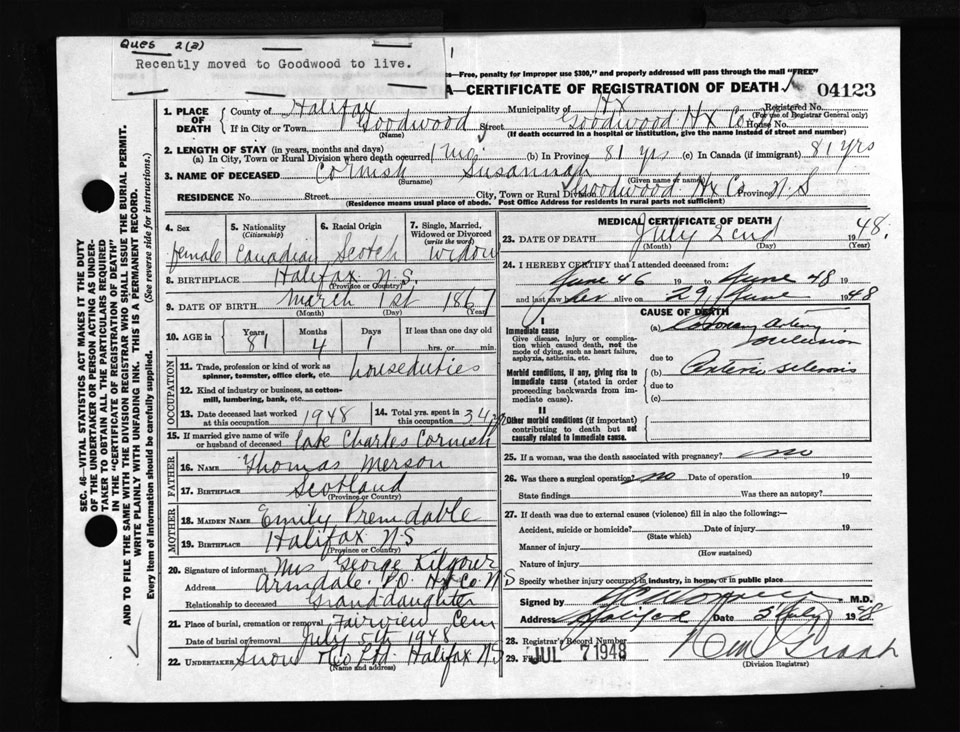 Ques 2(a)
Recently moved to Goodwood to live.
—Free, penalty for improper use $300," and properly addressed will pass through the mail "FREE"
A—CERTIFICATE OF REGISTRATION OF DEATH 04123
1. PLACE OF DEATH County of Halifax Municipality of Hx Registered No. (For use of Registrar General only)
If in City or Town Goodwood Street Goodwood Hx Co House No.
(Name) (If death occurred in a hospital or institution, give the name instead of street and number)
2. LENGTH OF STAY (in years, months and days)
(a) In City, Town or Rural Division where death occurred 1 mo. (b) In Province 81 yrs (c) In Canada (if immigrant) 81 yrs
3. NAME OF DECEASED Cornish Susannah
(Surname) (Given name or names)
RESIDENCE No. Street City, Town or Rural Division Goodwood Hx Co Province N.S
(Residence means usual place of abode. Post Office Address for residents in rural parts not sufficient)
4. Sex female
5. Nationality (Citizenship) Canadian
6. Racial Origin Scotch
7. Single, Married, Widowed or Divorced (write the word) Widow
8. BIRTHPLACE Halifax N.S.
(Province or Country)
9. DATE OF BIRTH March 1st 1867
(Month) (Day) (Year)
10. AGE in Years 81 Months 4 Days 1 If less than one day old hrs. or min.
OCCUPATION
11. Trade, profession or kind of work as spinner, teamster, office clerk, etc. houseduties
12. Kind of industry or business, as cotton-mill, lumbering, bank, etc.
13. Date deceased last worked at this occupation 1948 14. Total yrs. spent in this occupation
15. If married give name of wife or husband of deceased late Charles Cornish
FATHER
16. NAME Thomas Merson
17. BIRTHPLACE Scotland
(Province or Country)
MOTHER
18. MAIDEN NAME Emily Premdable
19. BIRTHPLACE Halifax N.S
(Province or Country)
20. Signature of informant Mrs George Kilgour
Address Armdale P.O. Hx Co. N.S
Relationship to deceased Granddaughter
21. Place of burial, cremation or removal Fairview Cem
Date of burial or removal July 5th 1948
22. UNDERTAKER Snow & Co Ltd. Halifax N.S
(Name and address)
MEDICAL CERTIFICATE OF DEATH
23. DATE OF DEATH July 2cnd 1948.
(Month) (Day) (Year)
24. I HEREBY CERTIFY that I attended deceased from:
June 46 19 to June 48 19
and last saw her alive on 29 June 1948
CAUSE OF DEATH
I
Immediate cause
Give disease, injury or complication which caused death, not the mode of dying, such as heart failure, asphyxia, asthenia, etc.
(a) Coronary artery occlusion
due to
Morbid conditions, if any, giving rise to immediate cause (stated in order proceeding backwards from immediate cause).
(b) Arterio sclerosis
due to
(c)
II
Other morbid conditions (if important) contributing to death but not causally related to immediate cause.
25. If a woman, was the death associated with pregnancy? no
26. Was there a surgical operation? no Date of operation 19
State findings Was there an autopsy?
27. If death was due to external causes (violence) fill in also the following:—
Accident, suicide or homicide? Date of injury 19
(State which)
Manner of injury
(How sustained)
Nature of injury
Specify whether injury occurred in industry, in home, or in public place
Signed by M.D.
Address Halifax Date 5 July 1948
28. Registrar's Record Number
29. Filed JUL 7 1948
(Division Registrar)
SEC. 46—VITAL STATISTICS ACT MAKES IT THE DUTY OF THE UNDERTAKER OR PERSON ACTING AS UNDERTAKER TO OBTAIN ALL THE PARTICULARS REQUIRED IN THE "CERTIFICATE OF REGISTRATION OF DEATH" AND TO FILE THE SAME WITH THE DIVISION REGISTRAR WHO SHALL ISSUE THE BURIAL PERMIT.
WRITE PLAINLY WITH UNFADING INK. THIS IS A PERMANENT RECORD.
Every item of information should be carefully supplied. (See reverse side for instructions.)